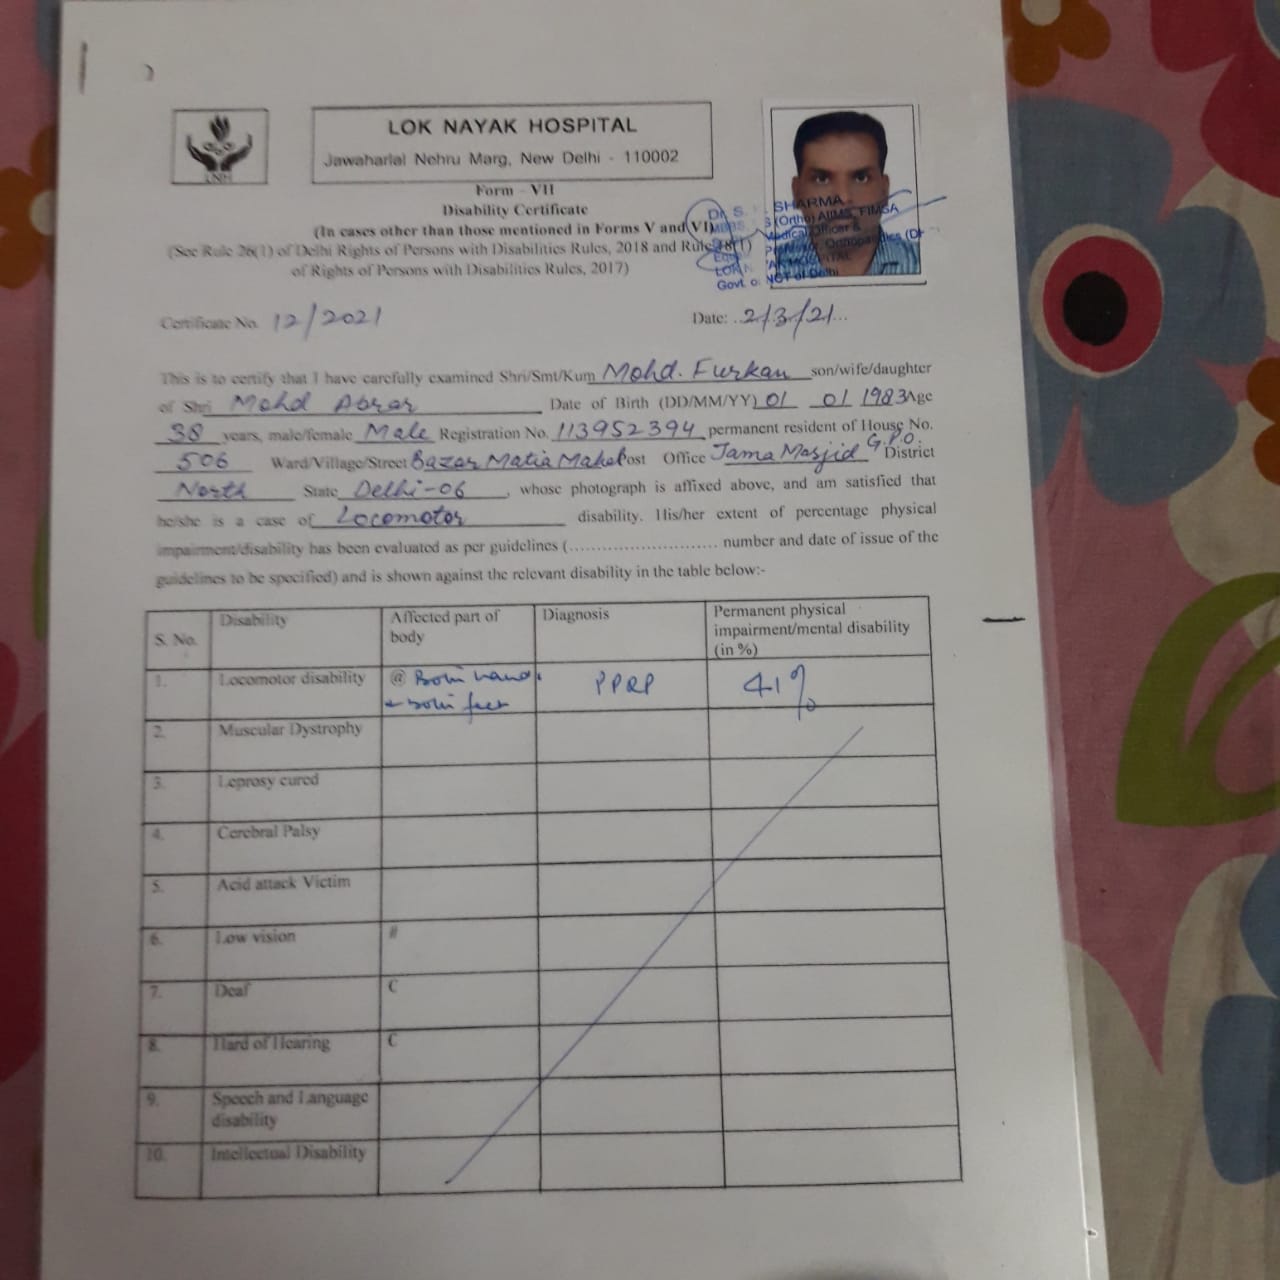 LNH
LOK NAYAK HOSPITAL
Jawaharlal Nehru Marg, New Delhi - 110002
Form - VII
Disability Certificate
(In cases other than those mentioned in Forms V and VI)
(See Rule 26(1) of Delhi Rights of Persons with Disabilities Rules, 2018 and Rule 18(1)
of Rights of Persons with Disabilities Rules, 2017)
Dr. S. SHARMA
(Ortho) AIIMS, FIMSA
Medical Officer &
Orthopaedics
LOK HOSPITAL
Govt. of NCT of Delhi
Certificate No. 12/2021
Date: 2/3/21
This is to certify that I have carefully examined Shri/Smt/Kum Mohd. Furkan son/wife/daughter
of Shri Mohd Abrar Date of Birth (DD/MM/YY) 01 01 1983 Age
38 years, male/female Male Registration No. 113952394 permanent resident of House No.
506 Ward/Village/Street Bazar Matia Mahel Post Office Jama Masjid G.P.O. District
North State Delhi-06, whose photograph is affixed above, and am satisfied that
he/she is a case of Locomotor disability. His/her extent of percentage physical
impairment/disability has been evaluated as per guidelines (.......................... number and date of issue of the
guidelines to be specified) and is shown against the relevant disability in the table below:-
S. No. Disability Affected part of body Diagnosis Permanent physical impairment/mental disability (in %)
1. Locomotor disability @ Both hands & both feet PPRP 41%
2. Muscular Dystrophy
3. Leprosy cured
4. Cerebral Palsy
5. Acid attack Victim
6. Low vision #
7. Deaf C
8. Hard of Hearing C
9. Speech and Language disability
10. Intellectual Disability